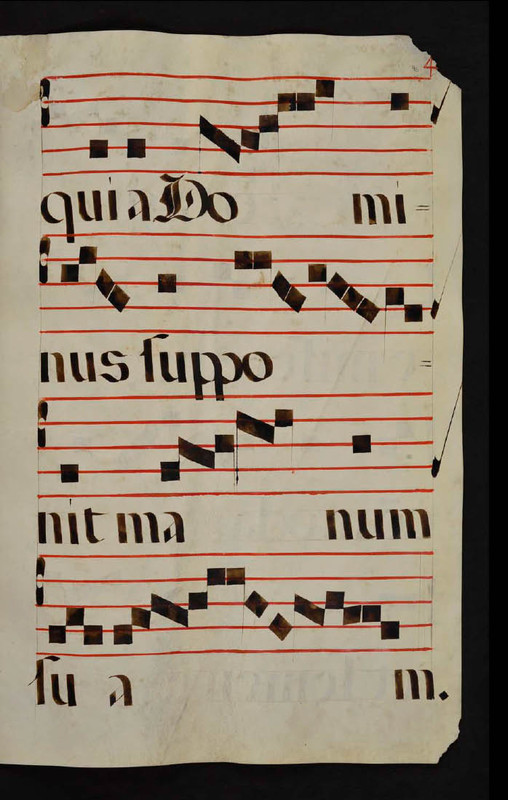 4
quia Do mi=
nus suppo =
nit ma num
su a m.